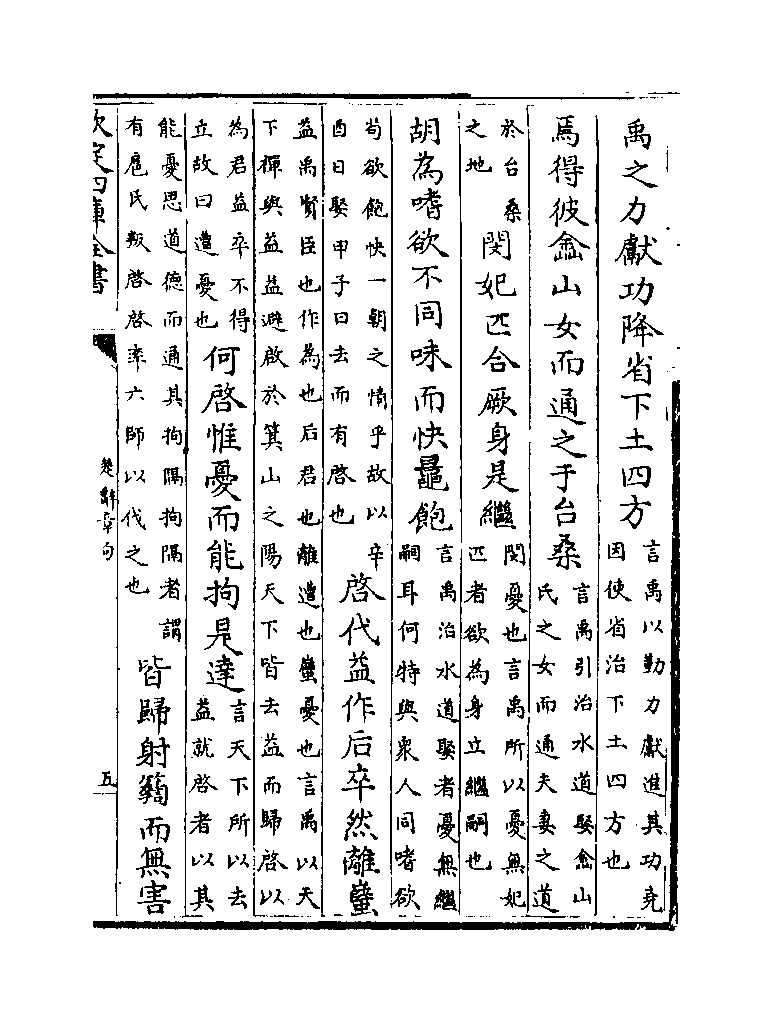 禹之力獻功降省下土四方
言禹以勤力獻進其功堯
因使省治下土四方也
焉得彼嵞山女而通之于台桑
言禹引治水道娶嵞山
氏之女而通夫妻之道
於台桑
之地
閔妃匹合厥身是繼
閔憂也言禹所以憂無妃
匹者欲為身立繼嗣也
胡為嗜欲不同味而快鼂飽
言禹治水道娶者憂無繼
嗣耳何特與衆人同嗜欲
茍欲飽快一朝之情乎故以辛
酉日娶甲子日去而有啓也
啓代益作后卒然離蠥
益禹賢臣也作為也后君也離遭也蠥憂也言禹以天
下禪與益益避啟於箕山之陽天下皆去益而歸啓以
為君益卒不得
立故曰遭憂也
何啓惟憂而能拘是達
言天下所以去
益就啓者以其
能憂思道德而通其拘隔拘隔者謂
有扈氏叛啓啓率六師以伐之也
皆歸射䉤而無害
欽定四庫全書
楚辭章句
五